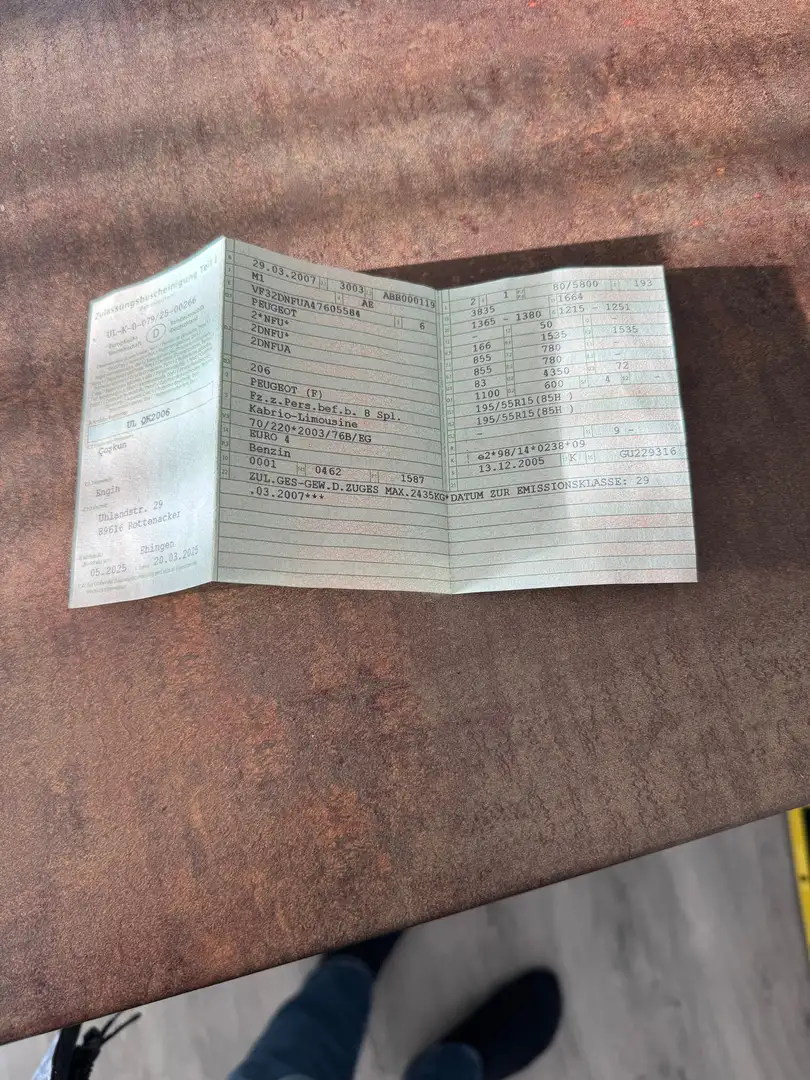 Zulassungsbescheinigung Teil I
UL-K-0-079/25-00266
Europäische
Gemeinschaft
D
UL QK2006
Engin
Uhlandstr. 29
89616 Rottenacker
Ehingen
05.2025
20.03.2025
29.03.2007 3003 ABB000119
M1 AE
VF32DNFUA47605584 6
PEUGEOT
2*NFU*
2DNFU*
2DNFUA
206
PEUGEOT (F)
Fz.z.Pers.bef.b. 8 Spl.
Kabrio-Limousine
70/220*2003/76B/EG
EURO 4
Benzin
0001 0462 1587
ZUL.GES-GEW.D.ZUGES MAX.2435KG*DATUM ZUR EMISSIONSKLASSE: 29
.03.2007***
2 1 80/5800 193
3835 1664
1365 - 1380 1215 - 1251
- 50 -
166 1535 1535
855 780 -
855 780 -
83 4350 72
1100 600 4 -
195/55R15(85H )
195/55R15(85H )
- 9 -
e2*98/14*0238*09
13.12.2005 K GU229316